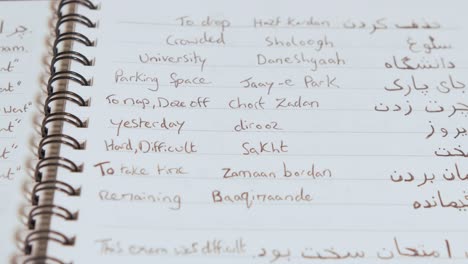 To drop Hazf kardan حذف کردن
Crowded Sholoogh شلوغ
University Daneshgaah دانشگاه
Parking Space Jaay-e Park جای پارک
To nap, Doze off Chort Zadan چرت زدن
yesterday dirooz یروز
Hard, Difficult Sakht خت
To take time Zamaan bordan مان بردن
Remaining Baaqimaande قیمانده
This exam was difficult امتحان سخت بود.